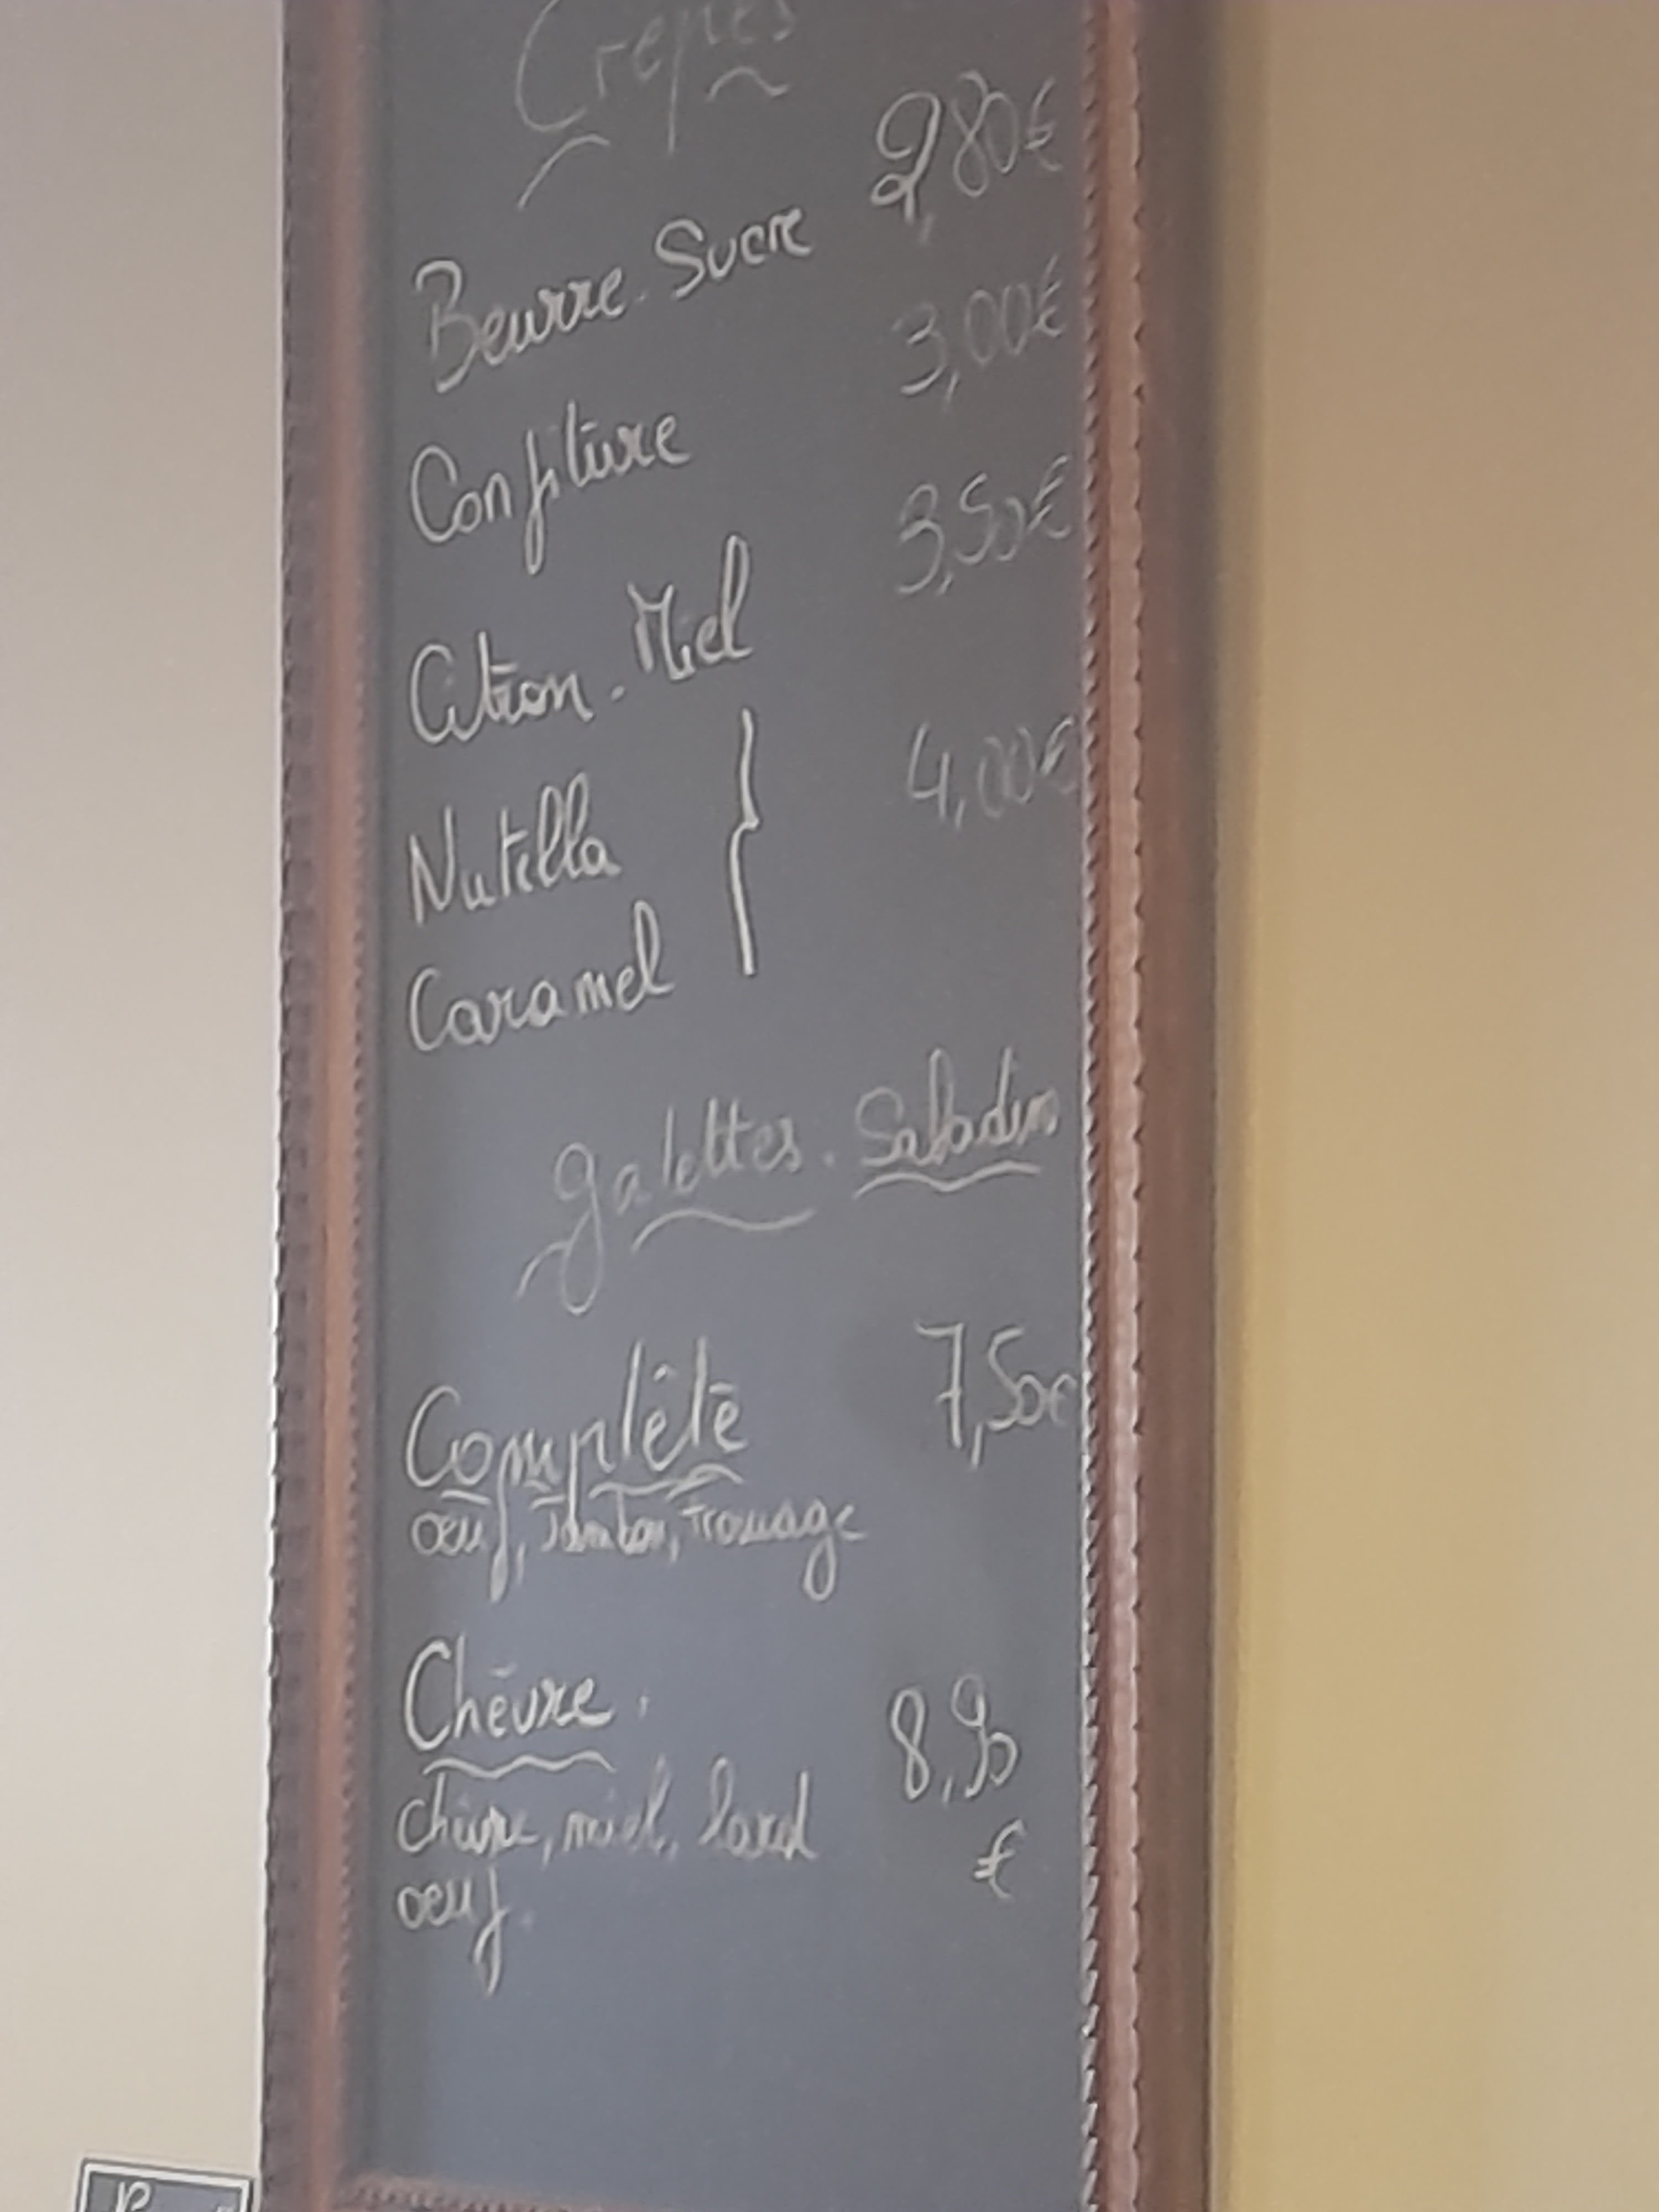 Crêpes
Beurre-Sucre 2,80€
Confiture 3,00€
Citron-Miel 3,50€
Nutella } 4,00€
Caramel
Galettes. Saladin
Complète 7,50€
œuf, Jambon, Fromage
Chèvre. 8,90
chèvre, miel, lard €
œuf.